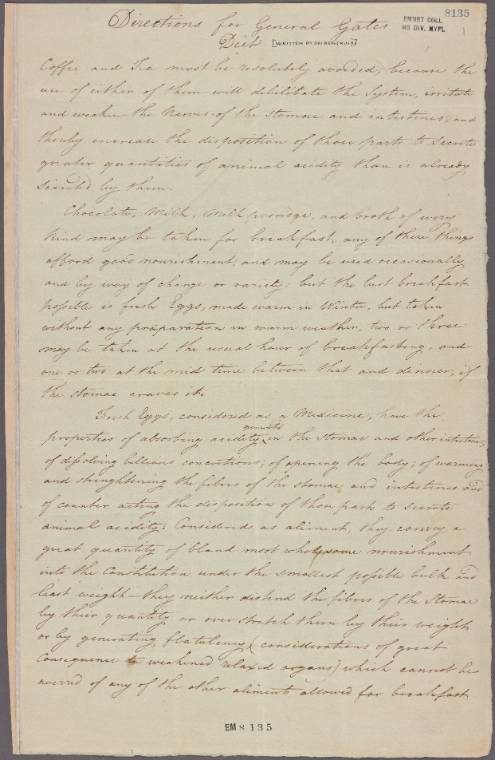 8135
EMMET COLL.
MS DIV. NYPL
Directions for General Gates
Diet
Coffee and Tea must be resolutely avoided, because the
use of either of them will debilitate the System, irritate
and weaken the Nerves of the Stomac and intestines, and
thereby encrease the disposition of those parts to secrete
greater quantities of animal acidity than is already
secreted by them.
Chocolate, Milk, Milk porridge, and broth of every
kind may be taken for breakfast, any of these things
afford good nourishment, and may be used occasionally
and by way of change or variety; but the best breakfast
possible is fresh Eggs, made warm in Winter, but taken
without any preparation in warm weather, two or three
may be taken at the usual hour of breakfasting, and
one or two at the mid time between that and dinner, if
the stomac craves it.
Fresh Eggs, considered as a Medicine, have the
properties of absorbing acidity in the Stomac and other intestines,
of dissolving billious concretions; of opening the body; of warming
and strenghtening the fibres of the stomac and intestines and
of counter acting the disposition of those parts to secrete
animal acidity: Considered as aliment, they convey a
great quantity of bland most wholesome nourishment
into the Constitution under the smallest possible bulk and
least weight — they neither distend the fibres of the Stomac
by their quantity or over stretch them by their weight
or by generating flatulency (considerations of great
Consequence to weakened relaxed organs) which cannot be
averred of any of the other aliments allowed for breakfast
EM 8135